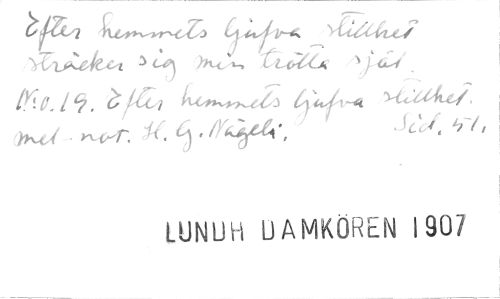 Efter hemmets ljufva stillhet
sträcker sig min trötta själ.
N:o 19. Efter hemmets ljufva stillhet.
mel. not. H. G. Nägeli. Sid. 51.
LUNDH DAMKÖREN 1907